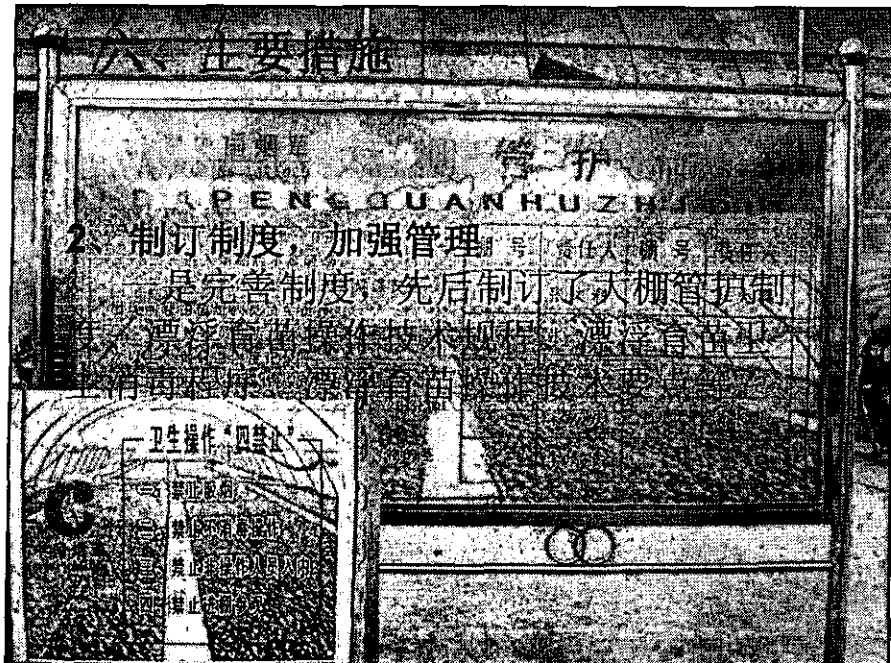 六、主要措施
管 护
PENG GUAN HU ZHI
2、制订制度，加强管理
号 责任人 编 号 责任人
一是完善制度，先后制订了大棚管护制
度、漂浮育苗操作技术规程、漂浮育苗卫
生消毒程序、漂浮育苗操作技术要点等
卫生操作“四禁止”
一、禁止吸烟
二、禁止不消毒操作
三、禁止非操作人员入内
四、禁止